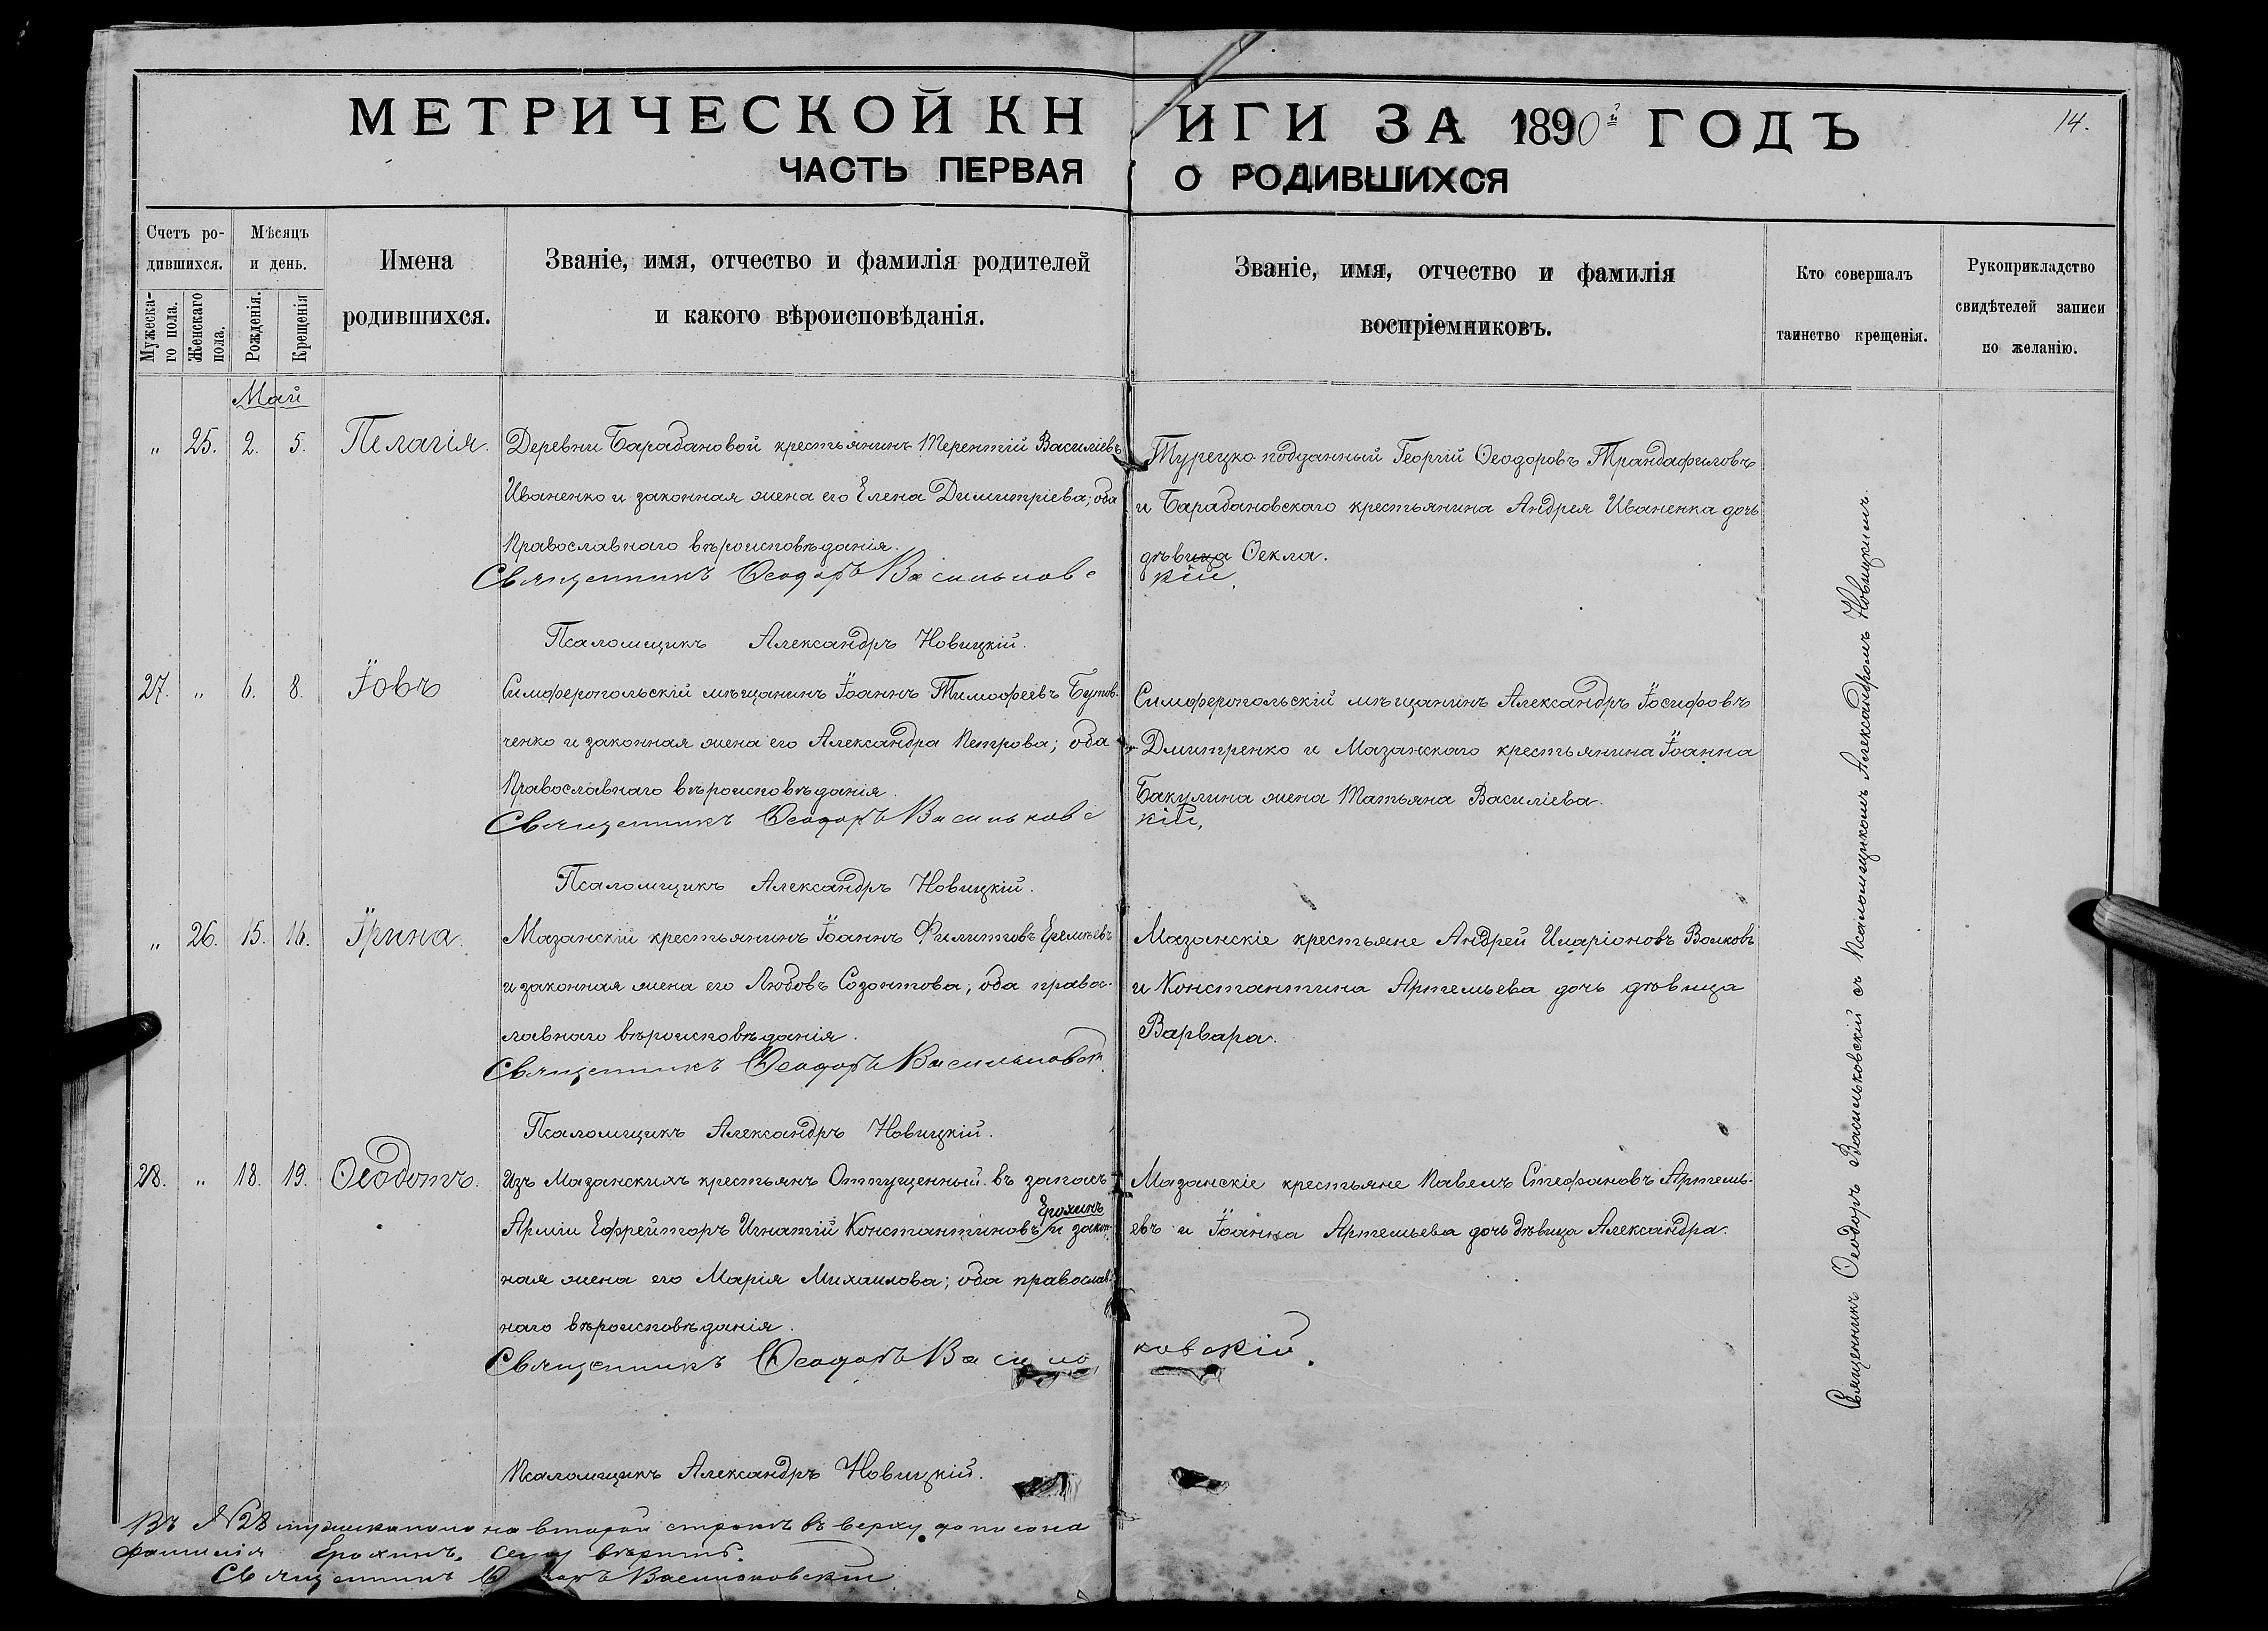 МЕТРИЧЕСКОЙ КНИГИ ЗА 1890й ГОДЪ
14.
ЧАСТЬ ПЕРВАЯ О РОДИВШИХСЯ
Счетъ ро-
дившихся.
Мужеска-
го пола.
Женскаго
пола.
Мѣсяцъ
и день.
Рожденія.
Крещенія
Имена
родившихся.
Званіе, имя, отчество и фамилія родителей
и какого вѣроисповѣданія.
Званіе, имя, отчество и фамилія
воспріемниковъ.
Кто совершалъ
таинство крещенія.
Рукоприкладство
свидѣтелей записи
по желанію.
Май
" 25. 2. 5. Пелагія.
Деревни Барабановой крестьянинъ Терентій Василіевъ
Иваненко и законная жена его Елена Димитріева; оба
Православнаго вѣроисповѣданія.
Турецко-подданный Георгій Ѳеодоровъ Трандафиловъ
и Барабановскаго крестьянина Андрея Иваненка дочь
дѣвица Ѳекла.
Священникъ Ѳеодоръ Васильковскій.
Псаломщикъ Александръ Новицкій.
27. " 6. 8. Іовъ
Симферопольскій мѣщанинъ Іоаннъ Тимофеевъ Бутов-
ченко и законная жена его Александра Петрова; оба
Православнаго вѣроисповѣданія.
Симферопольскій мѣщанинъ Александръ Іосифовъ
Дмитренко и Мазанскаго крестьянина Іоанна
Бакулина жена Татьяна Василіева.
Священникъ Ѳеодоръ Васильковскій.
Псаломщикъ Александръ Новицкій.
" 26. 15. 16. Ірина.
Мазанскій крестьянинъ Іоаннъ Филиповъ Еремѣевъ
и законная жена его Любовь Созонтова; оба правос-
лавнаго вѣроисповѣданія.
Мазанскіе крестьяне Андрей Иларіоновъ Волковъ
и Константина Артемьева дочь дѣвица
Варвара.
Священникъ Ѳеодоръ
Псаломщикъ Александръ Новицкій.
28. " 18. 19. Ѳеодотъ.
Изъ Мазанскихъ крестьянъ Отпущенный въ запасъ
Ерохинъ
Арміи Ефрейторъ Игнатій Константиновъ и закон-
ная жена его Марія Михаилова; оба православ-
наго вѣроисповѣданія.
Мазанскіе крестьяне Павелъ Стефановъ Артемь-
евъ и Іоанна Артемьева дочь дѣвица Александра.
Священникъ Ѳеодоръ Васильковскій.
Псаломщикъ Александръ Новицкій.
Священникъ Ѳеодоръ Васильковскій съ Псаломщикомъ Александромъ Новицкимъ.
Въ №28 на второй строкѣ въ верху дописана
фамилія Ерохинъ. Сему вѣрить.
Священникъ Васильковскій